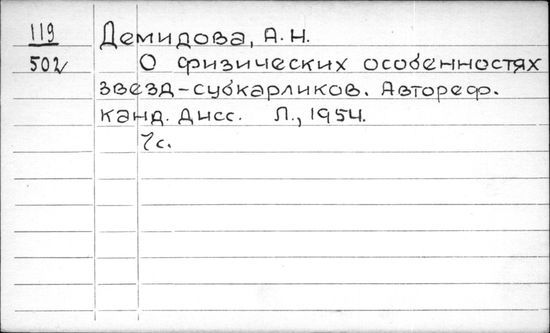 119 Демидова, А.Н.
502 О физических особенностях
звезд-субкарликов. Автореф.
канд. дисс. Л., 1954.
7с.